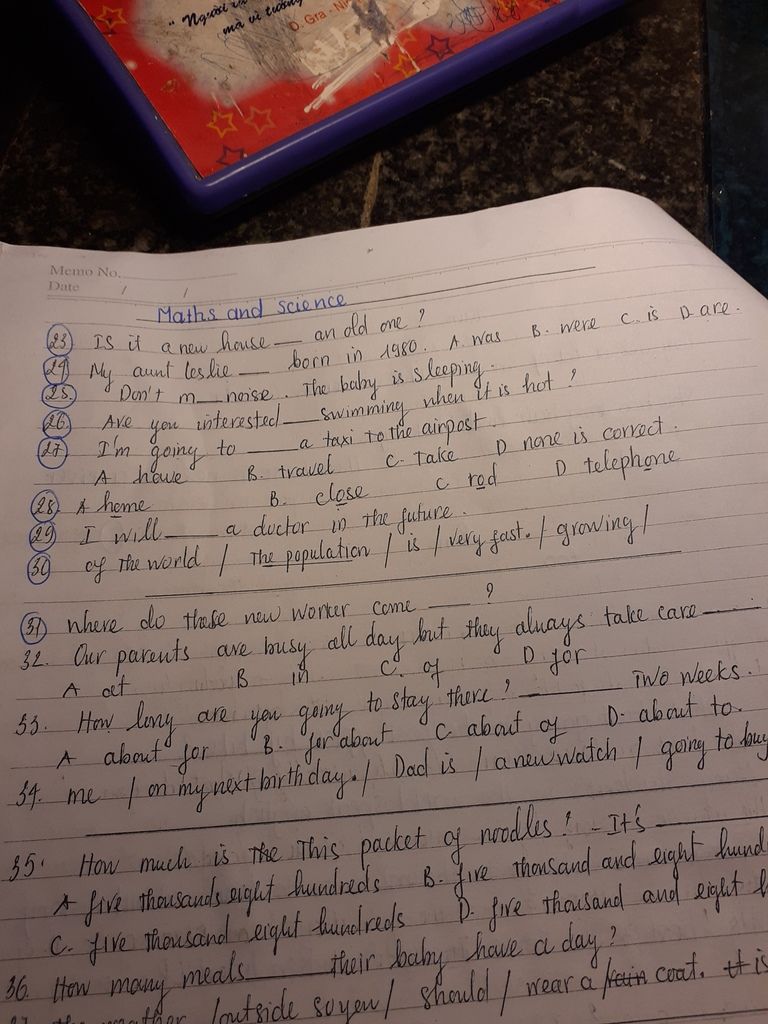 " Người
mà vì tưởng
D. Gra - Ni
Memo No.
Date / /
Maths and science
23 Is it a new house ___ an old one ?
24 My aunt leslie ___ born in 1980. A. was B. were C. is D. are.
25. Don't m___ noise. The baby is sleeping.
26. Are you interested ___ swimming when it is hot ?
27 I'm going to ___ a taxi to the airpost.
A have B. travel C. Take D none is correct.
28. A home B. close C rod D telephone
29 I will ___ a doctor in the future.
30 of the world / The population / is / very fast. / growing /
31 where do these new worker come ___ ?
32. Our parents are busy all day but they always take care ___
A at B in C. of D for
33. How long are you going to stay there? ___ two weeks.
A about for B. for about C about of D. about to.
34. me / on my next birthday. / Dad is / a new watch / going to buy
35. How much is the This packet of noodles? - It's ___
A five thousands eight hundreds B. five thousand and eight hund
C. five thousand eight hundreds D. five thousand and eight h
36. How many meals ___ their baby have a day?
/ outside so you / should / wear a / rain coat. it is